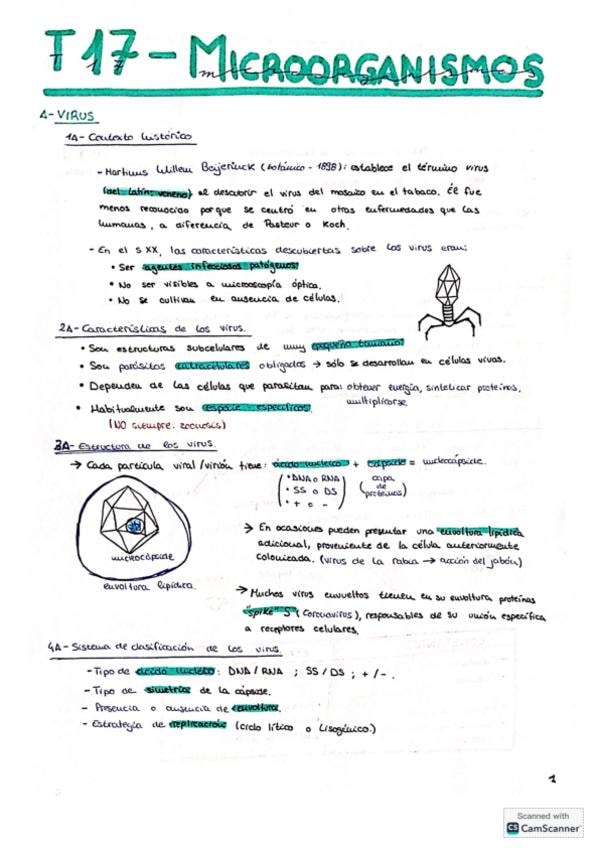 T17 - MICROORGANISMOS
A- VIRUS
1A- Contexto histórico
- Martinus Willem Beijerinck (botánico - 1898): establece el término virus
(del latín: veneno) al descubrir el virus del mosaico en el tabaco. Él fue
menos reconocido porque se centró en otras enfermedades que las
humanas, a diferencia de Pasteur o Koch.
- En el s XX, las características descubiertas sobre los virus eran:
• Ser agentes infecciosos patógenos.
• No ser visibles a microscopía óptica.
• No se cultivan en ausencia de células.
2A- Características de los virus.
• Son estructuras subcelulares de muy pequeño tamaño.
• Son parásitos intracelulares obligados → sólo se desarrollan en células vivas.
• Dependen de las células que parasitan para: obtener energía, sintetizar proteínas,
multiplicarse
• Habitualmente son especie-específicos.
(NO siempre: zoonosis)
3A- Estructura de los virus.
→ Cada partícula viral/virión tiene: ácido nucleico + cápside = nucleocápside.
(• DNA o RNA
• SS o DS
• + o -)
(capa
de
proteínas)
nucleocápside
envoltura lipídica.
→ En ocasiones pueden presentar una envoltura lipídica
adicional, proveniente de la célula anteriormente
colonizada. (virus de la rabia → acción del jabón)
→ Muchos virus envueltos tienen en su envoltura proteínas
"spike" S (Coronavirus), responsables de su unión específica
a receptores celulares.
4A- Sistema de clasificación de los virus.
- Tipo de ácido nucleico: DNA / RNA ; SS / DS ; + / - .
- Tipo de simetría de la cápside.
- Presencia o ausencia de envoltura.
- Estrategia de replicación (ciclo lítico o lisogénico.)
1
Scanned with
CS CamScanner